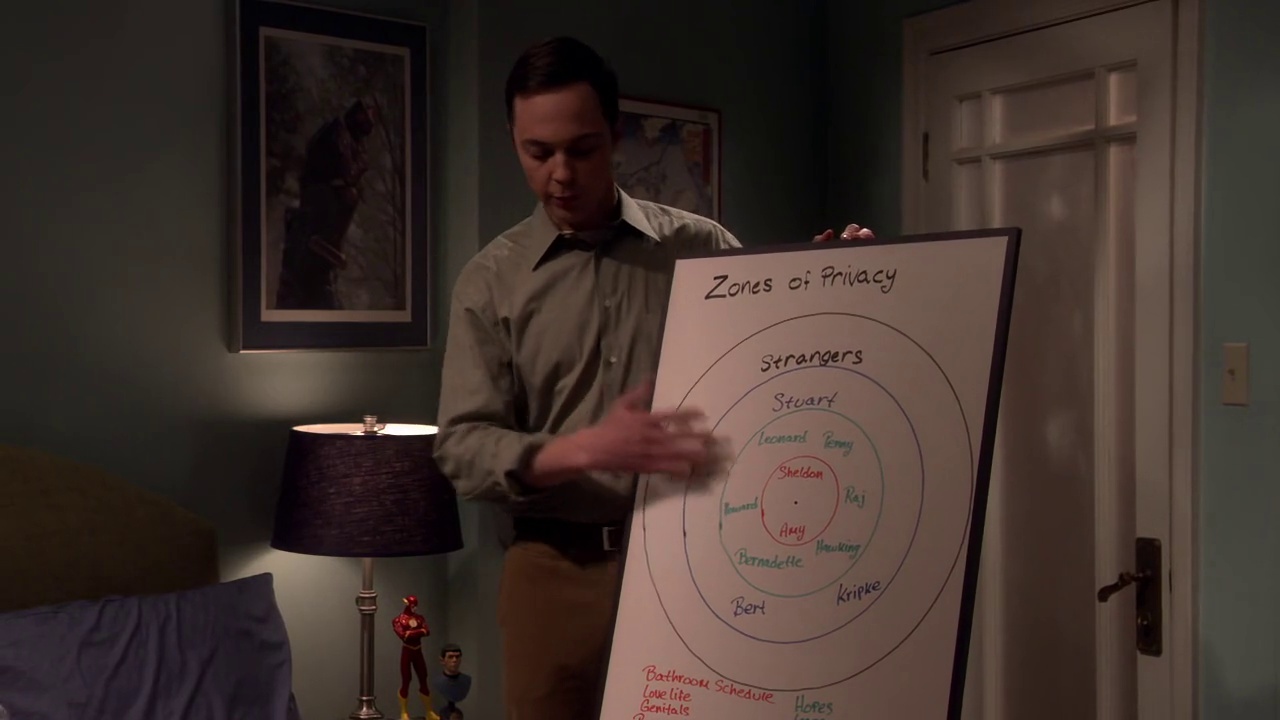 Zones of Privacy
Strangers
Stuart
Leonard Penny
Sheldon
Howard Raj
Amy
Bernadette Hawking
Bert Kripke
Bathroom Schedule
Love life
Genitals
Hopes